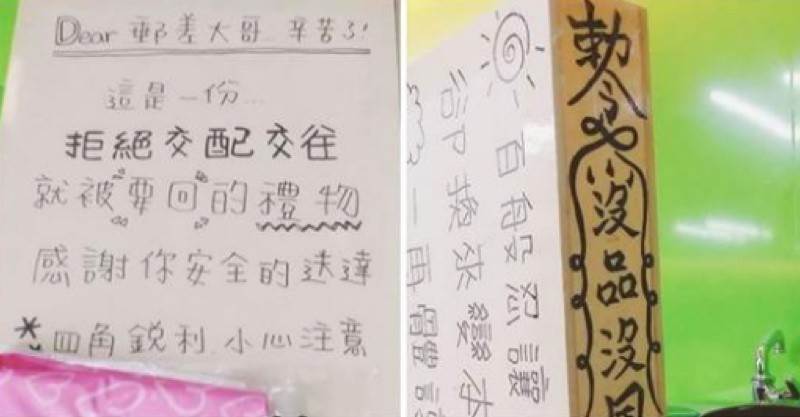 Dear 郵差大哥 辛苦了!
這是一份...
拒絕交配交往
就被要回的禮物
感謝你安全的送達
*四角銳利 小心注意
勅令
沒品沒
忍讓
卻換來變本
一再體